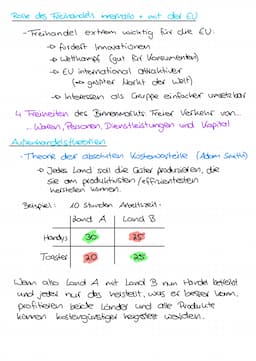 Rolle des Freihandels innerhalb + mit der EU
-Freihandel extrem wichtig für die EU:
→ fördert Innovationen
→ Wettkampf (gut für Konsumenten)
→ EU international attraktiver
(→ größter Markt der Welt)
→ Interessen als Gruppe einfacher umsetzbar
4 Freiheiten des Binnenmarkts: Freier Verkehr von...
...Waren, Personen, Dienstleistungen und Kapital
Außenhandelstheorien
-Theorie der absoluten Kostenvorteile (Adam Smith)
→ Jedes Land soll die Güter produzieren, die
sie am produktivsten/effizientesten
herstellen können.
Beispiel: 10 Stunden Arbeitszeit:
Land A Land B
Handys 30 25
Toaster 20 25
Wenn also Land A mit Land B nun Handel betreibt
und jeder nur das herstellt, was er besser kann,
profitieren beide Länder und alle Produkte
können kostengünstiger hergestellt werden.